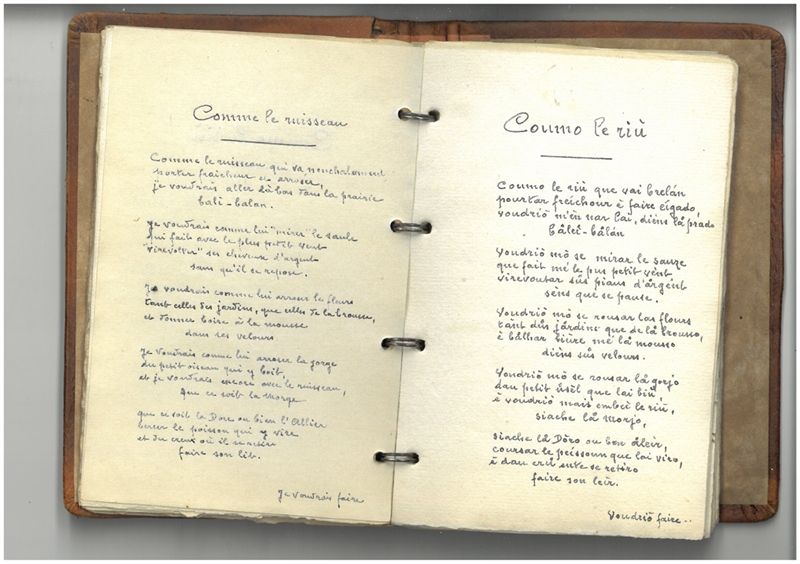 Comme le ruisseau
Comme le ruisseau qui va nonchalament
porter fraîcheur et arroser,
je voudrais aller là bas dans la prairie
bali-balan.
Je voudrais comme lui "mirer" le saule
qui fait avec le plus petit vent
"virevolter" ses cheveux d'argent
sans qu'il se repose.
Je voudrais comme lui arroser les fleurs
tant celles des jardins, que celles de la brousse,
et donner boire à la mousse
dans ses velours.
Je voudrais comme lui arroser la gorge
du petit oiseau qui y boit,
et je voudrais encore avec le ruisseau,
que ce soit la Morge
que ce soit la Dore ou bien l'Allier
bercer le poisson qui y vire
et du creux où il se retire
faire son lit.
Je voudrais faire
Coumo le riù
Coumo le riù que vai brelán
pourtar freichour è faire eigado,
voudriô m'en nar lai, diens lå prado
bålei-bålán
Voudriô mô se mirar le sauze
que fait mé le pus petit vent
virevoutar sûs piaus d'argent
sens que se pause.
Voudriô mô se rousar las flours
tant dûs jardins que de lå brousso,
è bålhar bière mé lå mousso
diens sûs velours.
Voudriô mô se rousar lå gorjo
dau petit ûsèl que lai biù,
è voudriô mais embei le riù,
siache lå Morjo,
siache lå Dôro ou ben åleir,
coursar le peissoun que lai viro,
è dau crû ente se retiro
faire son leir.
Voudriô faire..